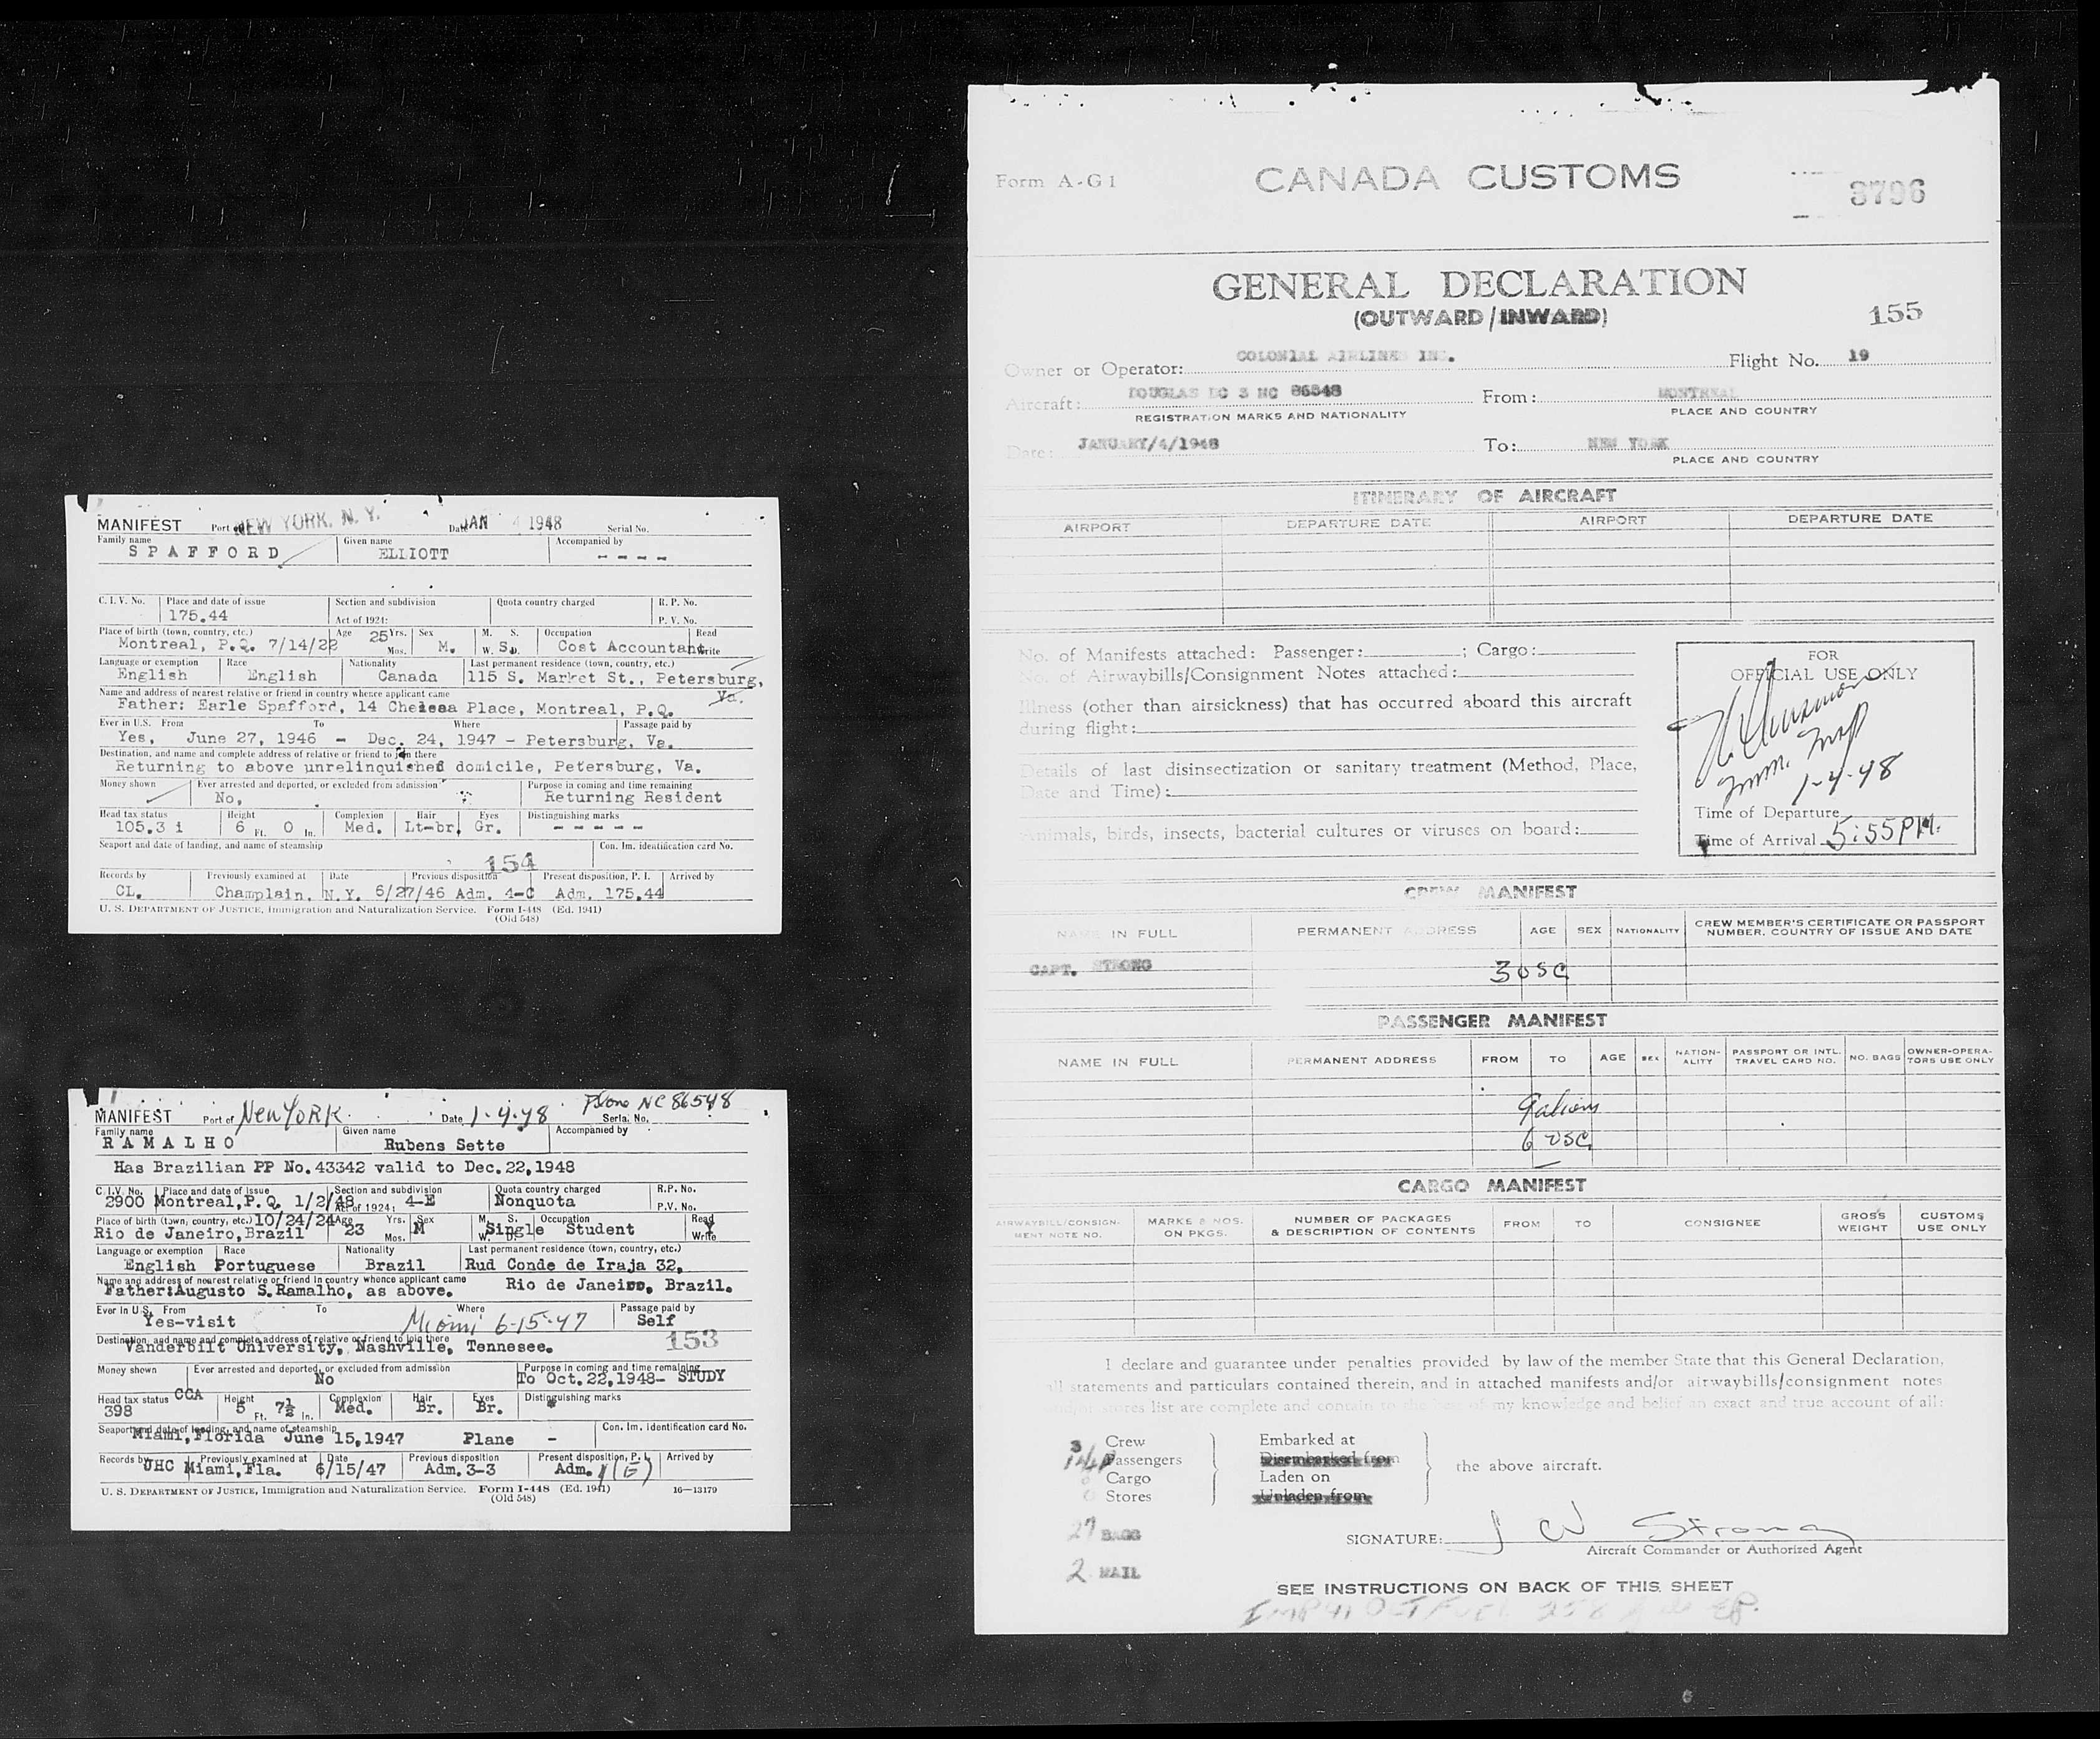 MANIFEST Port of NEW YORK, N. Y. Date JAN 4 1948 Serial No.
Family name Given name Accompanied by
SPAFFORD ELLIOTT - - - -
C. I. V. No. Place and date of issue Section and subdivision Quota country charged R. P. No.
175.44 Act of 1924: P. V. No.
Place of birth (town, country, etc.) Age 25 Yrs. Sex M. S. Occupation Read
Montreal, P.Q. 7/14/22 Mos. M. W. S. D. Cost Accountant Write
Language or exemption Race Nationality Last permanent residence (town, country, etc.)
English English Canada 115 S. Market St., Petersburg,
Name and address of nearest relative or friend in country whence applicant came Va.
Father: Earle Spafford, 14 Chelsea Place, Montreal, P.Q.
Ever in U.S. From To Where Passage paid by
Yes, June 27, 1946 - Dec. 24, 1947 - Petersburg, Va.
Destination, and name and complete address of relative or friend to join there
Returning to above unrelinquished domicile, Petersburg, Va.
Money shown Ever arrested and deported, or excluded from admission Purpose in coming and time remaining
No, Returning Resident
Head tax status Height Complexion Hair Eyes Distinguishing marks
105.3 i 6 Ft. 0 In. Med. Lt-br. Gr. - - - - -
Seaport and date of landing, and name of steamship Con. Im. identification card No.
154
Records by Previously examined at Date Previous disposition Present disposition, P. I. Arrived by
CL. Champlain, N.Y. 6/27/46 Adm. 4-C Adm. 175.44
U. S. DEPARTMENT OF JUSTICE, Immigration and Naturalization Service. Form I-448 (Ed. 1941)
(Old 548)
Plane NC 86548
MANIFEST Port of New York Date 1-4-48 Serial No.
Family name Given name Accompanied by
RAMALHO Rubens Sette
Has Brazilian PP No. 43342 valid to Dec. 22, 1948
C.I.V. No. Place and date of issue Section and subdivision Quota country charged R.P. No.
2900 Montreal, P.Q. 1/2/48 Act of 1924: 4-E Nonquota P.V. No.
Place of birth (town, country, etc.) 10/24/24 Age Yrs. Sex M. S. Occupation Read Y
Rio de Janeiro, Brazil 23 Mos. M W. D. Single Student Write
Language or exemption Race Nationality Last permanent residence (town, country, etc.)
English Portuguese Brazil Rud Conde de Iraja 32,
Name and address of nearest relative or friend in country whence applicant came
Father: Augusto S. Ramalho, as above. Rio de Janeiro, Brazil.
Ever in U.S. From To Where Passage paid by
Yes-visit Miami 6-15-47 Self
Destination, and name and complete address of relative or friend to join there 153
Vanderbilt University, Nashville, Tennesee.
Money shown Ever arrested and deported, or excluded from admission Purpose in coming and time remaining
No To Oct. 22, 1948- STUDY
Head tax status CCA Height Complexion Hair Eyes Distinguishing marks
398 5 Ft. 7½ In. Med. Br. Br.
Seaport and date of landing, and name of steamship Con. Im. identification card No.
Miami, Florida June 15, 1947 Plane -
Records by Previously examined at Date Previous disposition Present disposition, P. I. Arrived by
UHC Miami, Fla. 6/15/47 Adm. 3-3 Adm.
U. S. DEPARTMENT OF JUSTICE, Immigration and Naturalization Service. Form I-448 (Ed. 1941) 16-13179
(Old 548)
Form A-G1 CANADA CUSTOMS 3796
GENERAL DECLARATION
(OUTWARD / INWARD) 155
Owner or Operator: COLONIAL AIRLINES INC. Flight No. 19
Aircraft: DOUGLAS DC 3 NC 86548 From: MONTREAL
REGISTRATION MARKS AND NATIONALITY PLACE AND COUNTRY
Date: JANUARY/4/1948 To: NEW YORK
PLACE AND COUNTRY
ITINERARY OF AIRCRAFT
AIRPORT DEPARTURE DATE AIRPORT DEPARTURE DATE
No. of Manifests attached: Passenger: ; Cargo:
No. of Airwaybills/Consignment Notes attached:
Illness (other than airsickness) that has occurred aboard this aircraft
during flight:
Details of last disinsectization or sanitary treatment (Method, Place,
Date and Time):
Animals, birds, insects, bacterial cultures or viruses on board:
FOR
OFFICIAL USE ONLY
Imm. Insp
1-4-48
Time of Departure
Time of Arrival 5:55 PM.
CREW MANIFEST
NAME IN FULL PERMANENT ADDRESS AGE SEX NATIONALITY CREW MEMBER'S CERTIFICATE OR PASSPORT
NUMBER, COUNTRY OF ISSUE AND DATE
CAPT. STRONG 3 USC
PASSENGER MANIFEST
NAME IN FULL PERMANENT ADDRESS FROM TO AGE SEX NATION-
ALITY PASSPORT OR INTL.
TRAVEL CARD NO. NO. BAGS OWNER-OPERA-
TORS USE ONLY
9 aliens
6 USC
CARGO MANIFEST
AIRWAYBILL/CONSIGN-
MENT NOTE NO. MARKS & NOS.
ON PKGS. NUMBER OF PACKAGES
& DESCRIPTION OF CONTENTS FROM TO CONSIGNEE GROSS
WEIGHT CUSTOMS
USE ONLY
I declare and guarantee under penalties provided by law of the member State that this General Declaration,
all statements and particulars contained therein, and in attached manifests and/or airwaybills/consignment notes
and/or stores list are complete and contain to the best of my knowledge and belief an exact and true account of all:
3 Crew Embarked at
Passengers Disembarked from the above aircraft.
0 Cargo Laden on
0 Stores Unladen from
27 BAGS
SIGNATURE: J W Strong
Aircraft Commander or Authorized Agent
2 MAIL
SEE INSTRUCTIONS ON BACK OF THIS SHEET